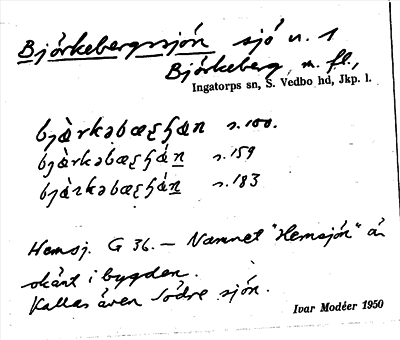 Björkebergssjön sjö n. 1
Björkeberg m. fl.,
Ingatorps sn, S. Vedbo hd, Jkp. l.
bjàrkəbæʒʃǻn s. 100.
bjàrkəbæʒʃán s. 159
bjàrkəbæʒʃán s. 183
Hemsj. G 36. – Namnet "Hemsjön" är
okänt i bygden.
Kallas även Södre sjön.
Ivar Modéer 1950